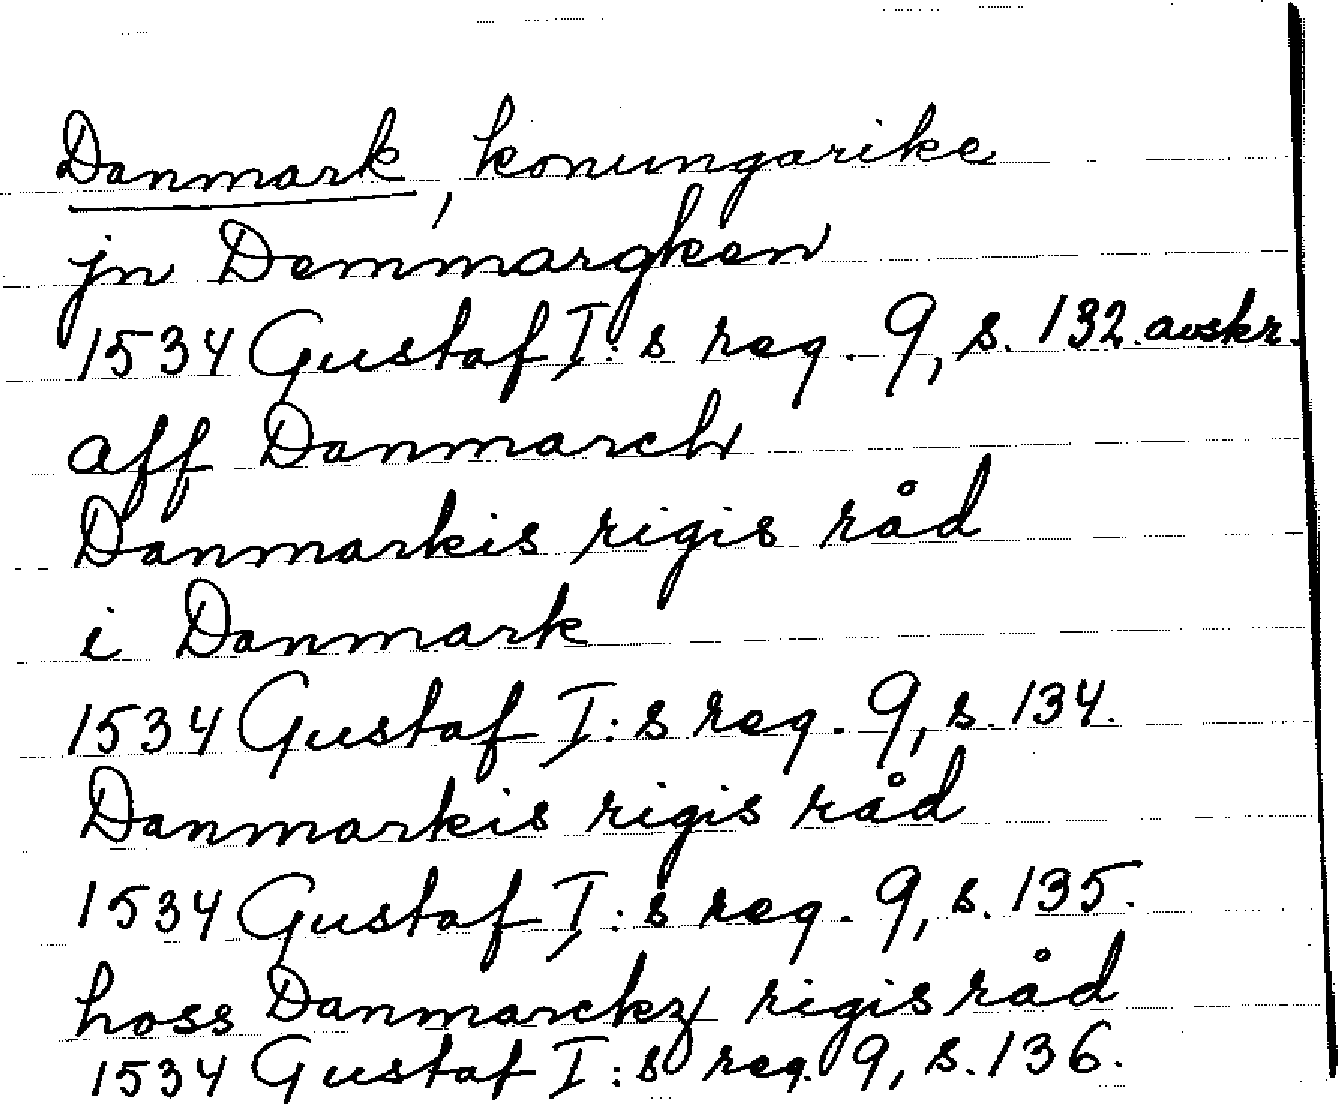 Danmark, konungarike
jn Demmargken
1534 Gustaf I:s reg. 9, s. 132. avskr.
aff Danmarch
Danmarkis rigis råd
i Danmark
1534 Gustaf I:s reg. 9, s. 134.
Danmarkis rigis råd
1534 Gustaf I:s reg. 9, s. 135.
hoss Danmarckz rigis råd
1534 Gustaf I:s reg. 9, s. 136.